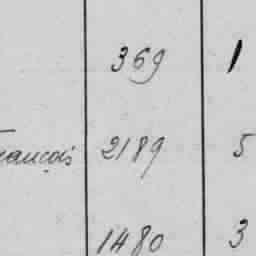 369 1
rançois 2189 5
1480 3